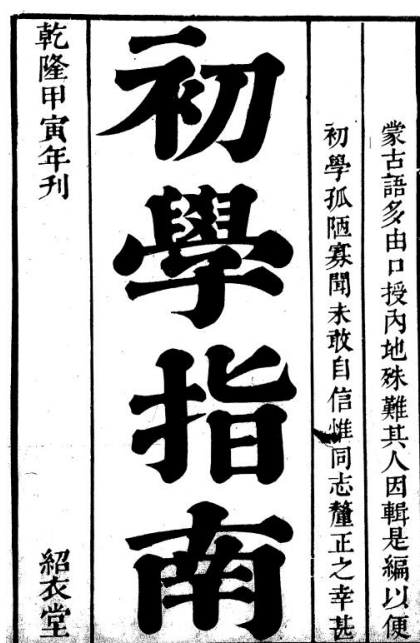 蒙古語多由口授內地殊難其人因輯是編以便
初學孤陋寡聞未敢自信惟同志釐正之幸甚
初學指南
乾隆甲寅年刊
紹衣堂